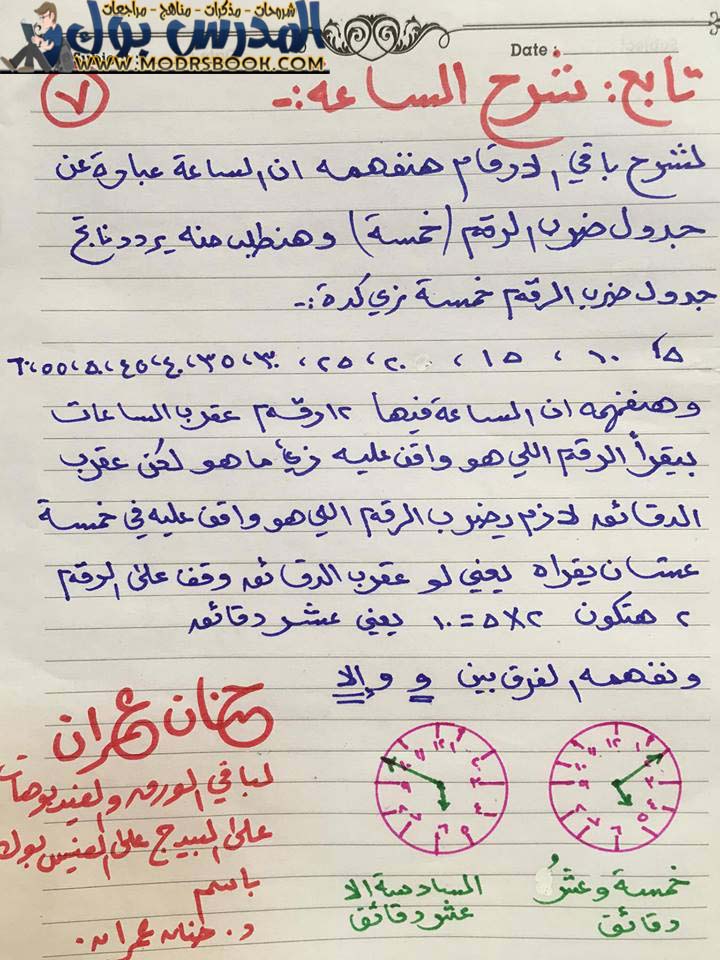 شروحات - مذكرات - مناهج - مراجعات
المدرس بوك
WWW.MODRSBOOK.COM
Date :
٧
تابع: شرح الساعة :-
لشرح باقي الارقام هنفهمه ان الساعة عبارة عن
جدول ضرب الرقم (خمسة) وهنطلب منه يردد ناتج
جدول ضرب الرقم خمسة زي كدة :-
٥، ١٠، ١٥، ٢٠، ٢٥، ٣٠، ٣٥، ٤٠، ٤٥، ٥٠، ٥٥، ٦٠
وهنفهمه ان الساعة فيها ١٢ رقم عقرب الساعات
بيقرأ الرقم اللي هو واقف عليه زي ما هو لكن عقرب
الدقائق لازم يضرب الرقم اللي هو واقف عليه في خمسة
عشان يقراه يعني لو عقرب الدقائق وقف على الرقم
٢ هتكون ٢×٥=١٠ يعني عشر دقائق
ونفهمه الفرق بين و و إلا
خمسة وعشر
دقائق
السادسة الا
عشر دقائق
حنان عمران
لباقي الورق والفيديوهات
على البيدج على الفيس بوك
باسم
د. حنان عمران.